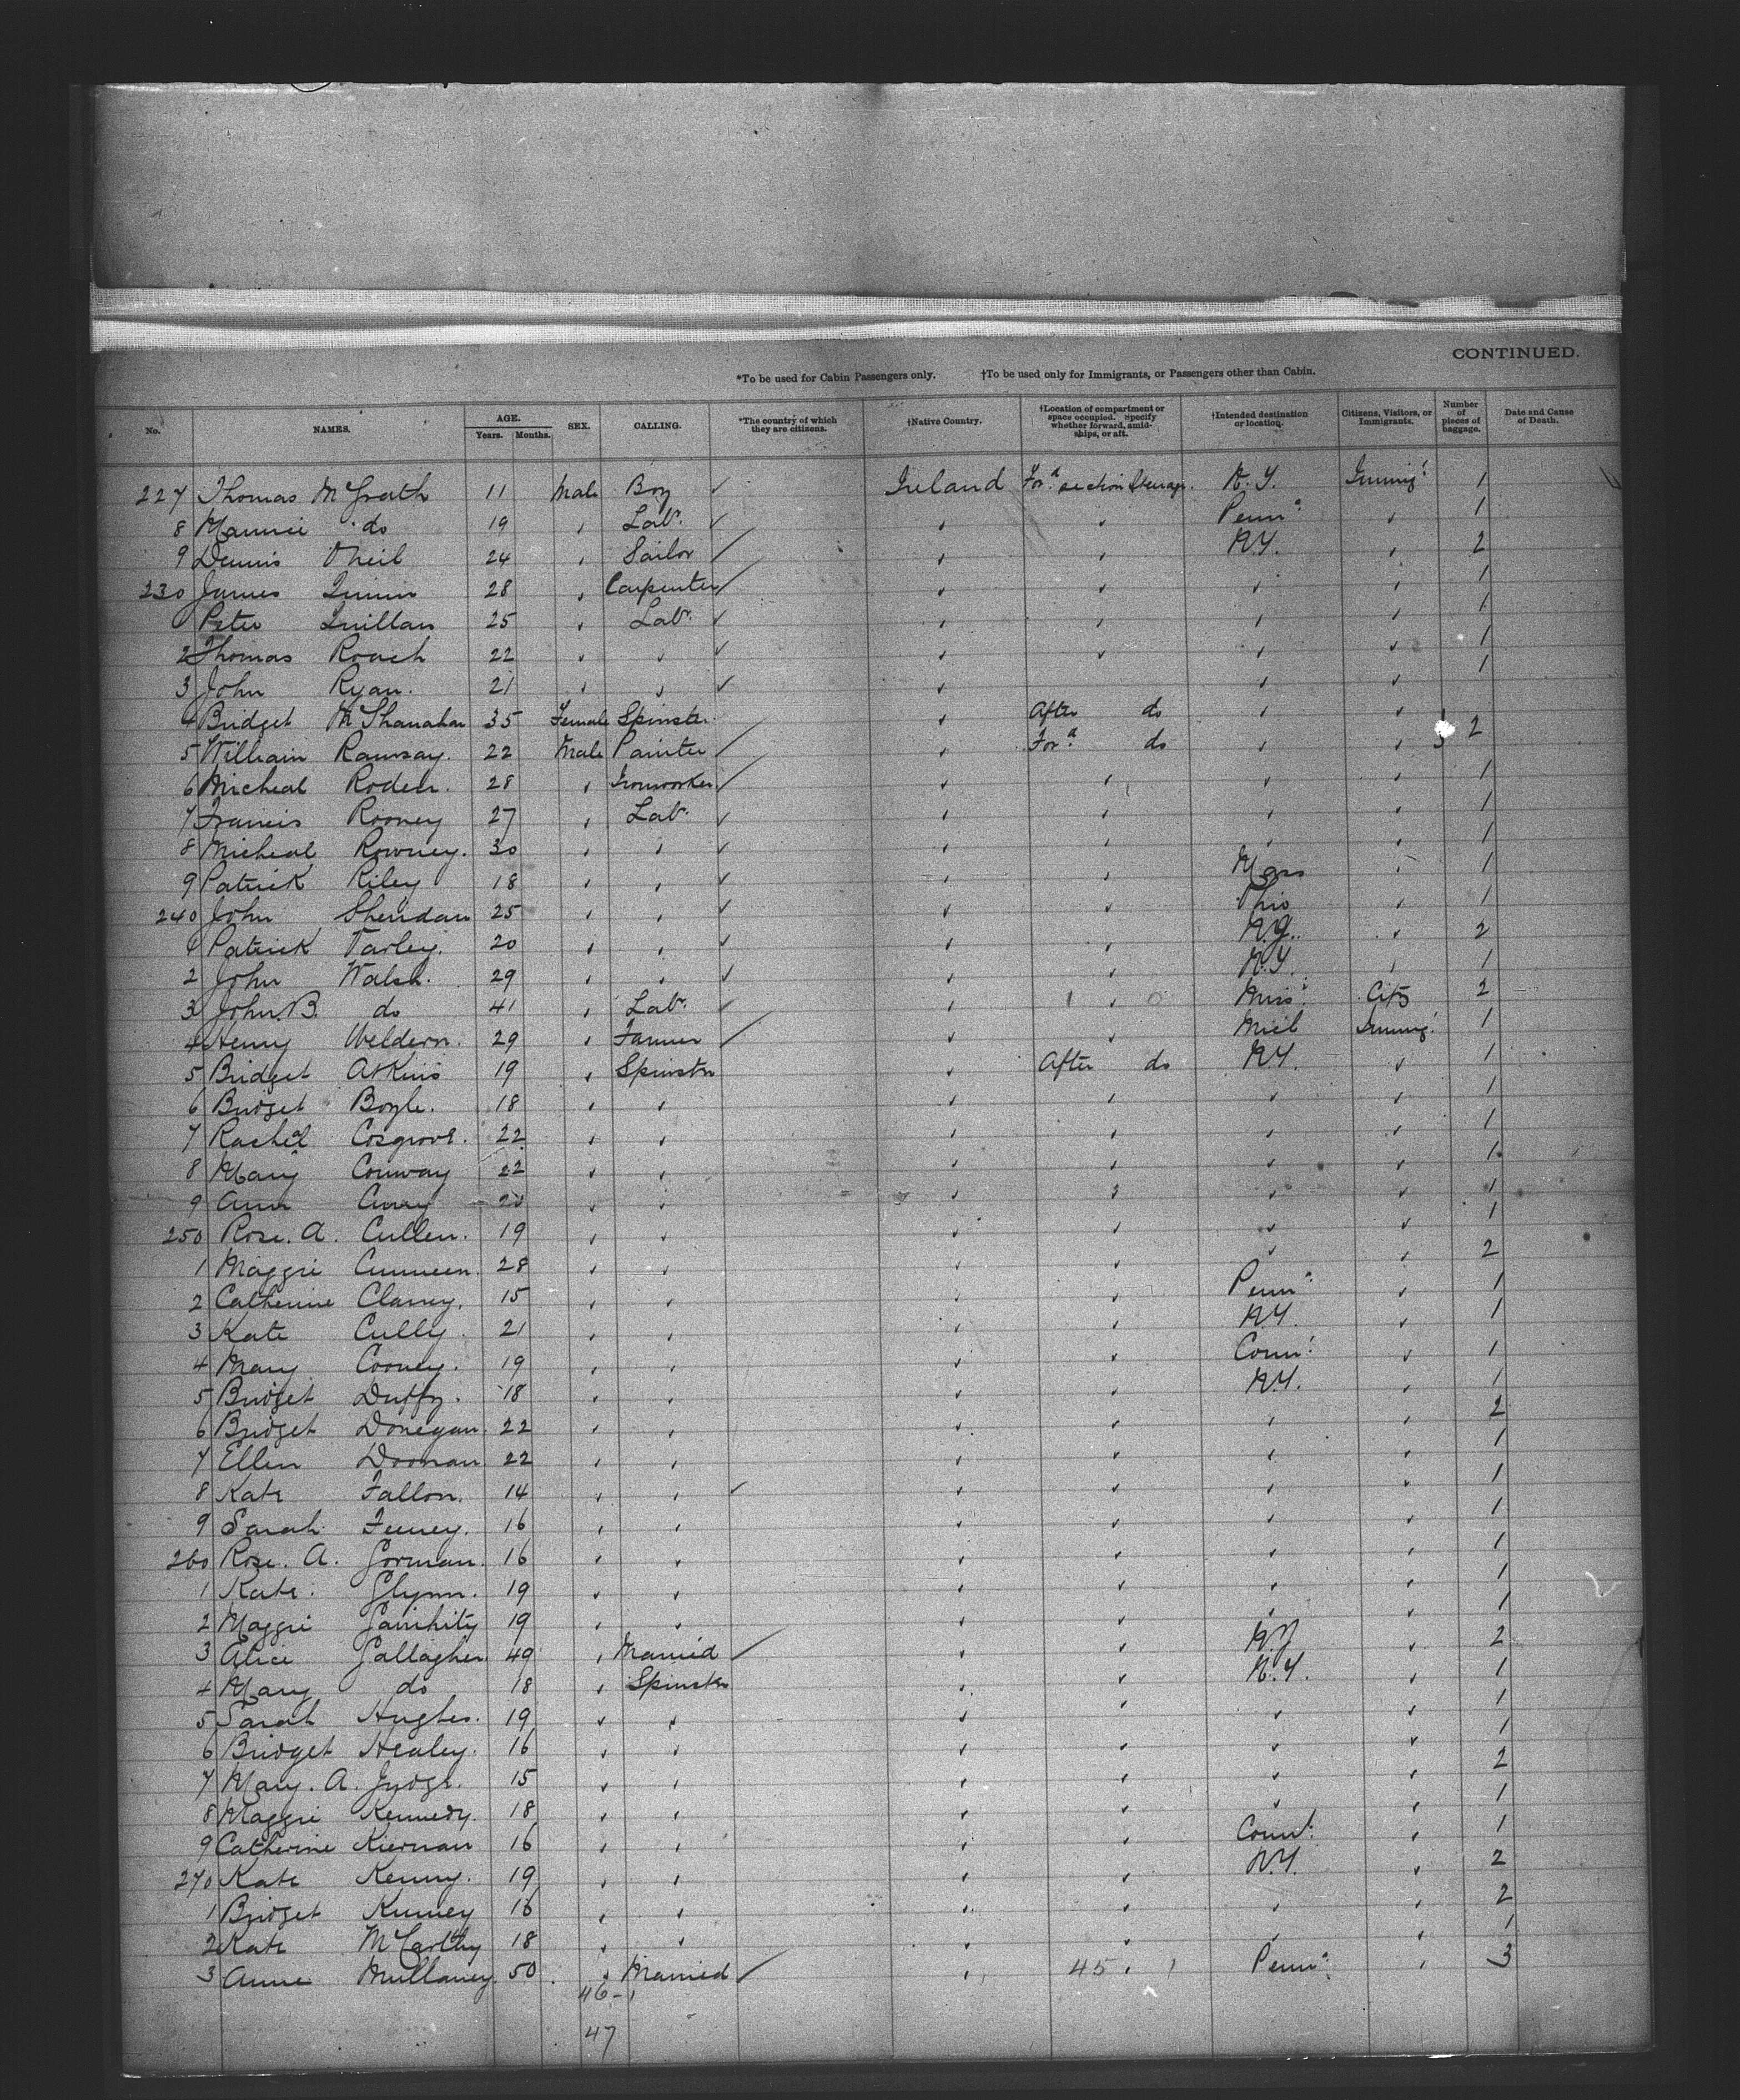 CONTINUED.
*To be used for Cabin Passengers only. †To be used only for Immigrants, or Passengers other than Cabin.
No. NAMES. AGE. Years. Months. SEX. CALLING. *The country of which they are citizens. †Native Country. †Location of compartment or space occupied. Specify whether forward, amidships, or aft. †Intended destination or location. Citizens, Visitors, or Immigrants. Number of pieces of baggage. Date and Cause of Death.
227 Thomas McGrath 11 Male Boy ✓ Ireland For.d section Steerage. N.Y. Immig.t 1
8 Maurice do 19 " Labr. ✓ " " Penn.a " 1
9 Dennis O'Neil 24 " Sailor ✓ " " N.Y. " 2
230 James Quinn 28 " Carpenter ✓ " " " " 1
1 Peter Quillan 25 " Labr. ✓ " " " " 1
2 Thomas Roach 22 " " ✓ " " " " 1
3 John Ryan. 21 " " ✓ " " " 1
4 Bridget McShanahan 35 Female Spinster. " After do " "
5 William Ramsay. 22 Male Painter ✓ " For.d do " " 2
6 Micheal Roden. 28 " Ironworker ✓ " " " " 1
7 Francis Rooney 27 " Labr. ✓ " " " " 1
8 Micheal Rowney. 30 " " ✓ " " " " 1
9 Patrick Riley 18 " " ✓ " " Mass " 1
240 John Sheridan 25 " " ✓ " " Ohio " 1
1 Patrick Varley. 20 " " ✓ " " N.J. " 2
2 John Walsh. 29 " " ✓ " " N.Y. " 1
3 John. B. do 41 " Labr. ✓ " " Miss. Citz 2
4 Henry Weldern. 29 " Farmer ✓ " " Mich Immig.t 1
5 Bridget Atkins 19 " Spinster " After do N.Y. " 1
6 Bridget Boyle. 18 " " " " " " 1
7 Rachel Cosgrove. 22 " " " " " " 1
8 Mary Conway 22 " " " " " " 1
9 Ann 20 " " " " " " 1
250 Rose. A. Cullen. 19 " " " " " " 1
1 Maggie Cunneen. 28 " " " " " " 2
2 Catherine Clancy. 15 " " " " Penn.a " 1
3 Kate Cully. 21 " " " " N.Y. " 1
4 Mary Cooney. 19 " " " " Conn. " 1
5 Bridget Duffy. 18 " " " " N.Y. " 1
6 Bridget Donegan. 22 " " " " " " 2
7 Ellen Doonan 22 " " " " " " 1
8 Kate Fallon. 14 " " ✓ " " " " 1
9 Sarah Feeney. 16 " " " " " " 1
260 Rose. A. Gorman. 16 " " " " " " 1
1 Kate. Glynn. 19 " " " " " " 1
2 Maggie 19 " " " " " " 1
3 Alice Gallagher 49 " Married ✓ " " N.J " 2
4 Mary do 18 " Spinster " " N.Y. " 1
5 Sarah Hughes. 19 " " " " " " 1
6 Bridget Healey. 16 " " " " " " 1
7 Mary. A. Judge. 15 " " " " " " 2
8 Maggie Kennedy. 18 " " " " " " 1
9 Catherine Kiernan 16 " " " " Conn. " 1
270 Kate Kenny. 19 " " " " N.Y. " 2
1 Bridget 16 " " " " " " 2
2 Kate McCarthy 18 " " " " " " 1
3 Anne Mullaney. 50 " Married ✓ " 45 " Penn.a " 3
46-
47